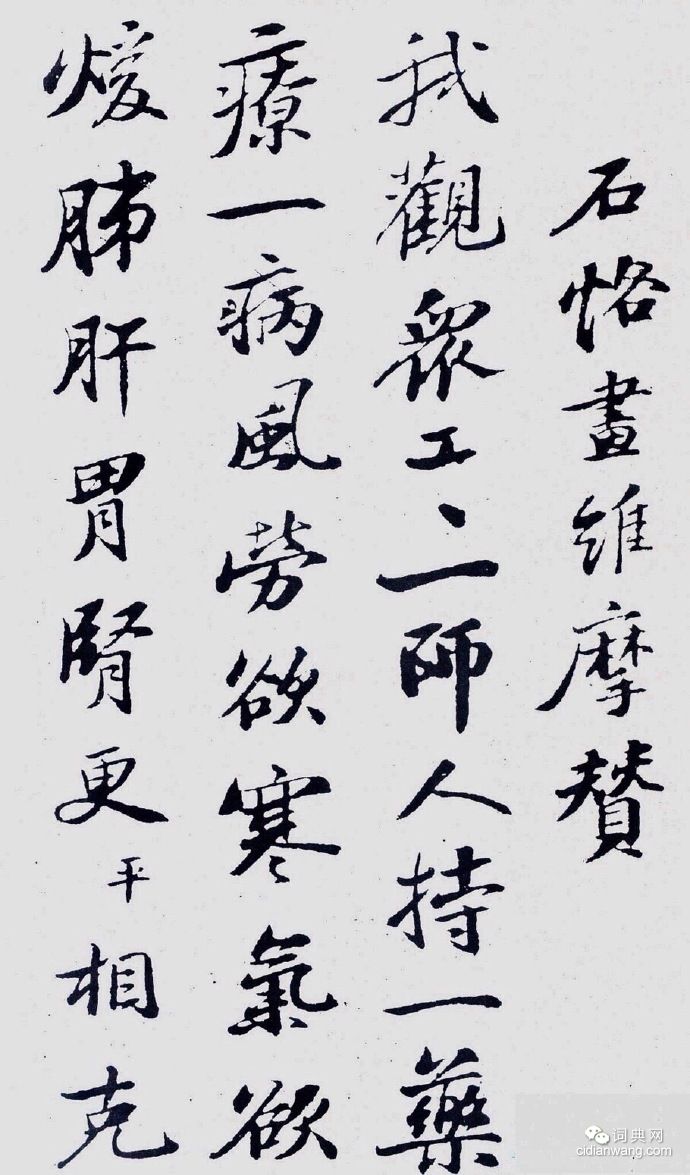 石恪畫維摩賛
我觀衆工、一師人持一藥
療一病風勞欲寒氣欲
煖肺肝胃腎更平相克
词典网
cidianwang.com